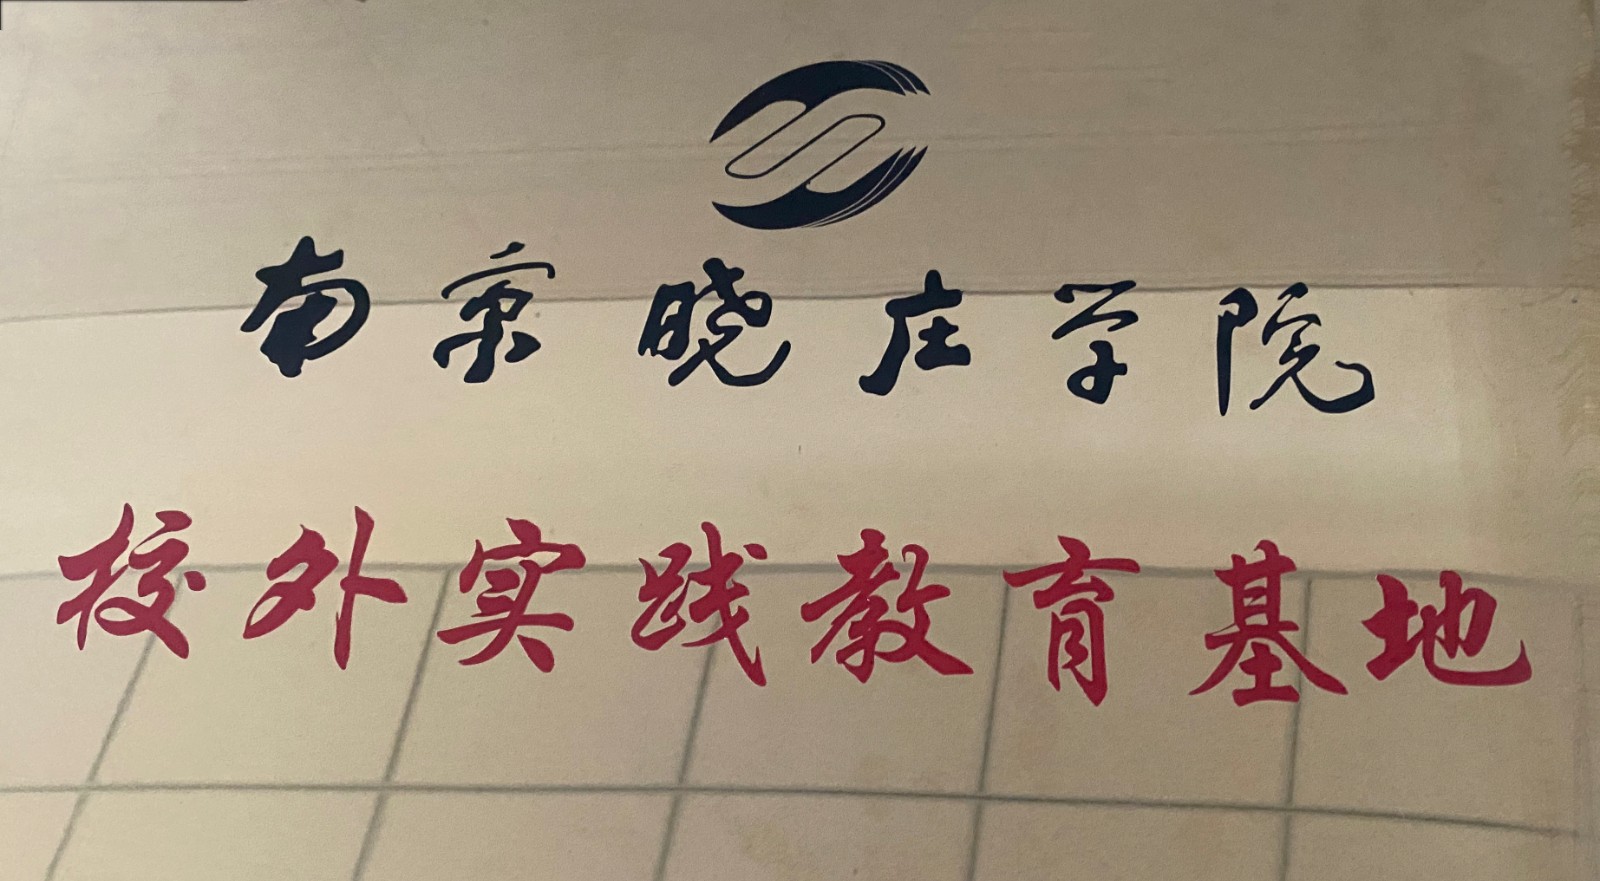 南京晓庄学院
校外实践教育基地